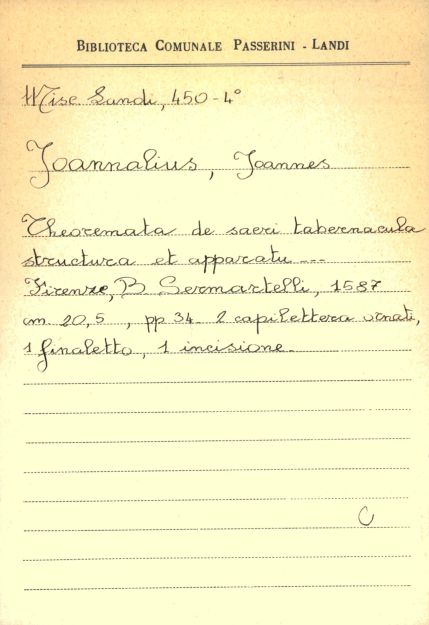 BIBLIOTECA COMUNALE PASSERINI - LANDI
Misc Landi, 450-4°
Joannalius, Joannes
Theoremata de sacri tabernacula
structura et apparatu ---
Firenze, B. Sermartelli, 1587
cm. 20,5 , pp 34. 2 capilettera ornati,
1 finaletto, 1 incisione.
C